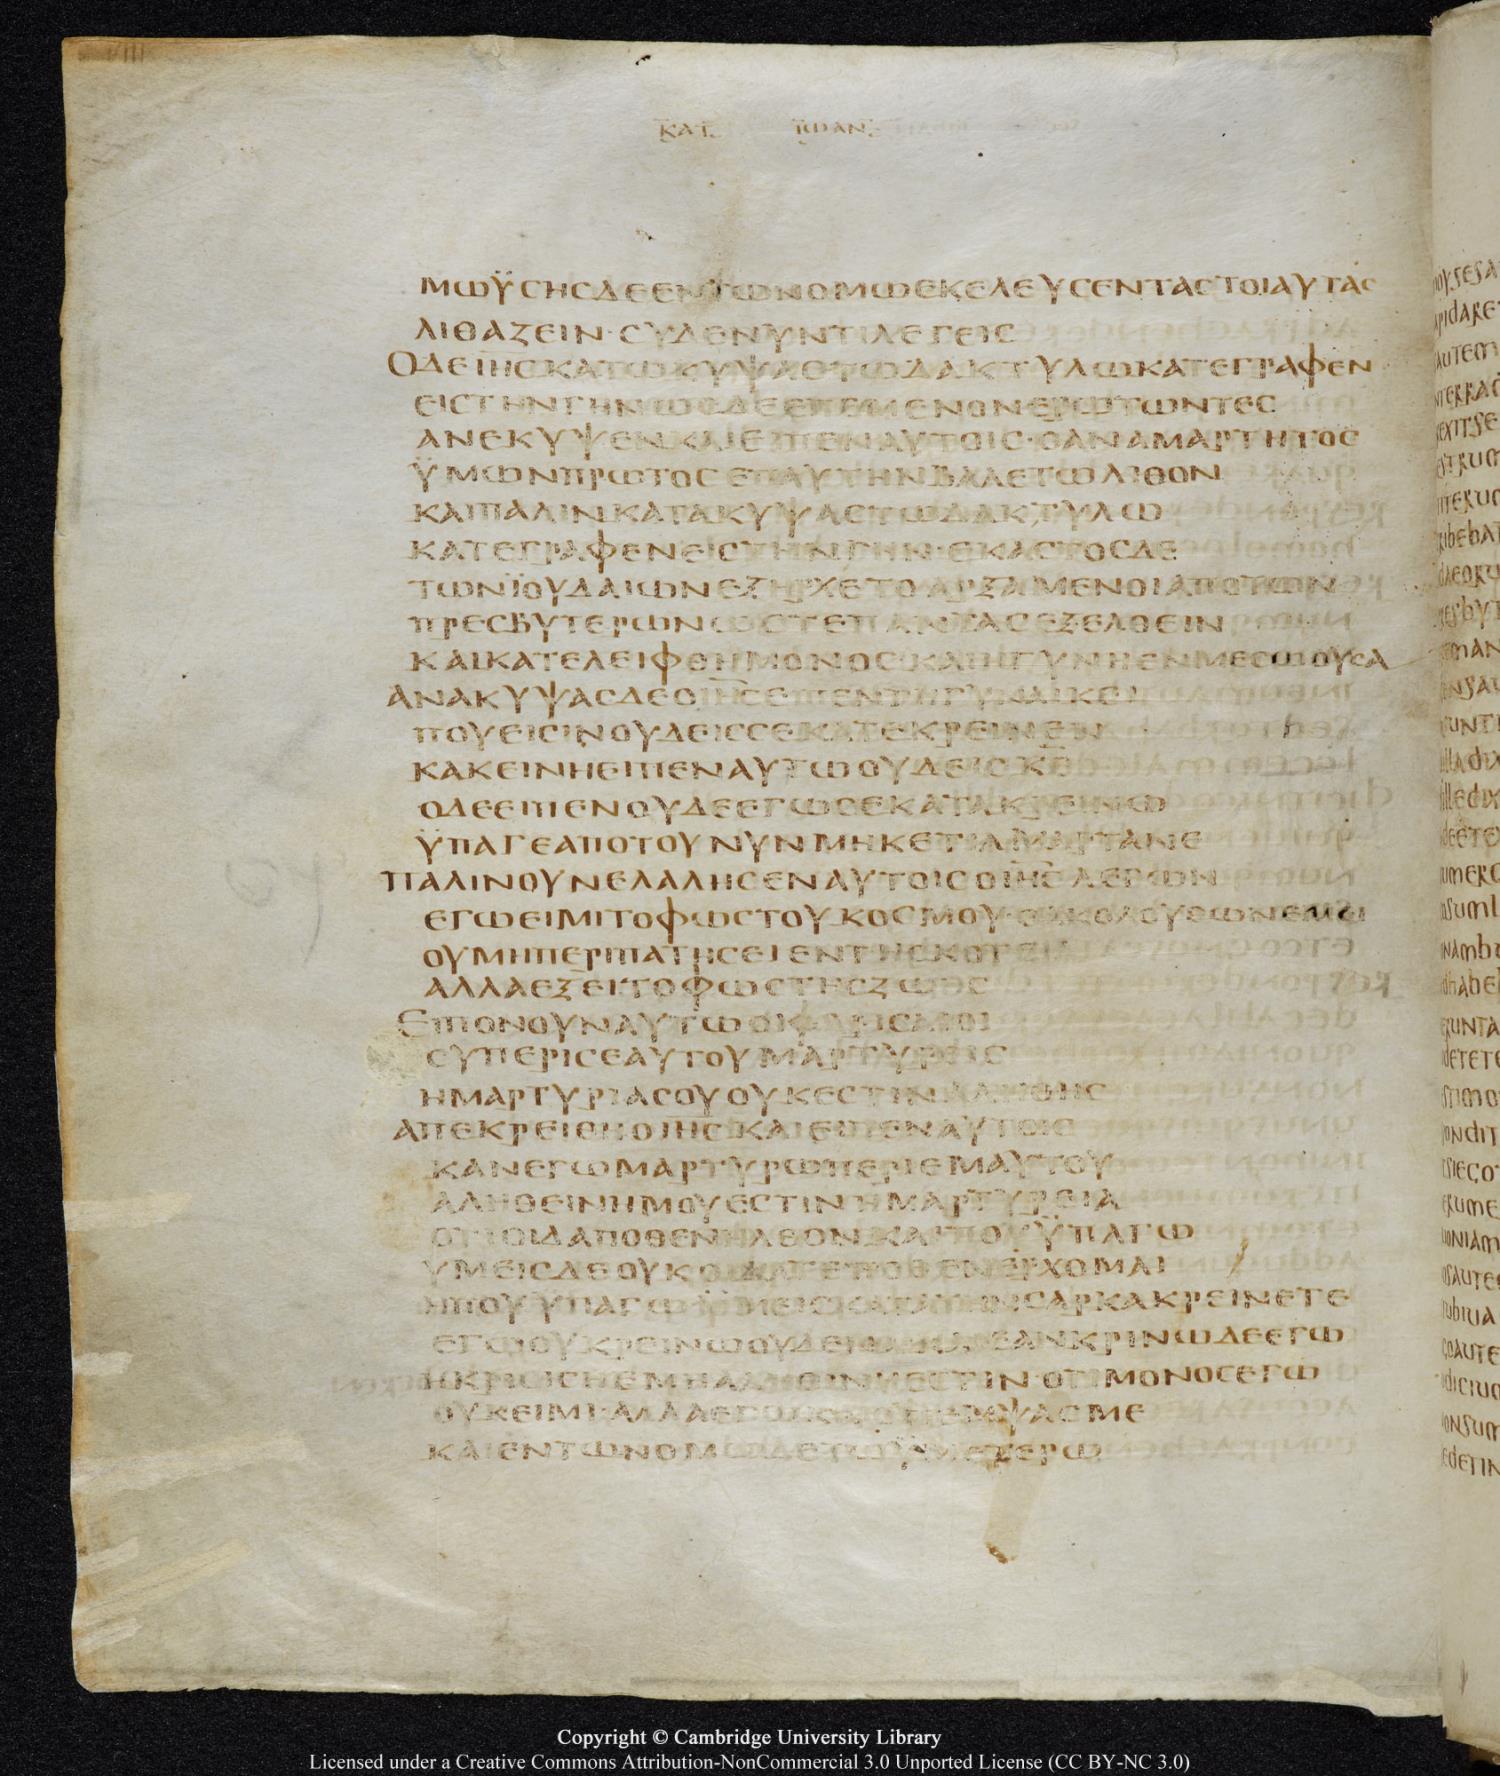 ΚΑΤ ΙΩΑΝ
ΜΩΫСΗСΔΕΕΝΤΩΝΟΜΩΕΚΕΛΕΥСΕΝΤΑСΤΟΙΑΥΤΑС
ΛΙΘΑΖΕΙΝ·СΥΔΕΝΥΝΤΙΛΕΓΕΙС
ΟΔΕΙΗСΚΑΤΩΚΥΨΑСΤΩΔΑΚΤΥΛΩΚΑΤΕΓΡΑΦΕΝ
ΕΙСΤΗΝΓΗΝΩСΔΕΕΠΕΜΕΝΟΝΕΡΩΤΩΝΤΕС
ΑΝΕΚΥΨΕΝΚΑΙΕΙΠΕΝΑΥΤΟΙС·ΟΑΝΑΜΑΡΤΗΤΟС
ΫΜΩΝΠΡΩΤΟСΕΠΑΥΤΗΝΒΑΛΕΤΩΛΙΘΟΝ
ΚΑΙΠΑΛΙΝΚΑΤΑΚΥΨΑСΤΩΔΑΚΤΥΛΩ
ΚΑΤΕΓΡΑΦΕΝΕΙСΤΗΝΓΗΝ·ΕΚΑСΤΟСΔΕ
ΤΩΝΪΟΥΔΑΙΩΝΕΞΗΡΧΕΤΟΑΡΞΑΜΕΝΟΙΑΠΟΤΩΝ
ΠΡΕСΒΥΤΕΡΩΝΩСΤΕΠΑΝΤΑСΕΞΕΛΘΕΙΝ
ΚΑΙΚΑΤΕΛΕΙΦΘΗΜΟΝΟСΚΑΙΗΓΥΝΗΕΝΜΕСΩΟΥСΑ
ΑΝΑΚΥΨΑСΔΕΟΙΗСΕΙΠΕΝΤΗΓΥΝΑΙΚΕΙ
ΠΟΥΕΙСΙΝΟΥΔΕΙССΕΚΑΤΕΚΡΕΙΝΕΝ
ΚΑΚΕΙΝΗΕΙΠΕΝΑΥΤΩΟΥΔΕΙСΚΕ
ΟΔΕΕΙΠΕΝΟΥΔΕΕΓΩСΕΚΑΤΑΚΡΕΙΝΩ
ΫΠΑΓΕΑΠΟΤΟΥΝΥΝΜΗΚΕΤΙΑΜΑΡΤΑΝΕ
ΠΑΛΙΝΟΥΝΕΛΑΛΗСΕΝΑΥΤΟΙСΟΙΗСΛΕΓΩΝ
ΕΓΩΕΙΜΙΤΟΦΩСΤΟΥΚΟСΜΟΥ·ΟΑΚΟΛΟΥΘΩΝΕΜΟΙ
ΟΥΜΗΠΕΡΙΠΑΤΗСΕΙΕΝΤΗСΚΟΤΕΙΑ
ΑΛΛΑΕΞΕΙΤΟΦΩСΤΗСΖΩΗС
ΕΙΠΟΝΟΥΝΑΥΤΩΟΙΦΑΡΙСΑΙΟΙ
СΥΠΕΡΙСΕΑΥΤΟΥΜΑΡΤΥΡΕΙС
ΗΜΑΡΤΥΡΙΑСΟΥΟΥΚΕСΤΙΝΑΛΗΘΗС
ΑΠΕΚΡΕΙΘΗΟΙΗСΚΑΙΕΙΠΕΝΑΥΤΟΙС
ΚΑΝΕΓΩΜΑΡΤΥΡΩΠΕΡΙΕΜΑΥΤΟΥ
ΑΛΗΘΕΙΝΗΜΟΥΕСΤΙΝΗΜΑΡΤΥΡΕΙΑ
ΟΤΙΟΙΔΑΠΟΘΕΝΗΛΘΟΝΚΑΙΠΟΥΫΠΑΓΩ
ΥΜΕΙСΔΕΟΥΚΟΙΔΑΤΕΠΟΘΕΝΕΡΧΟΜΑΙ
ΗΠΟΥΥΠΑΓΩΫΜΕΙСΚΑΤΑΤΗΝСΑΡΚΑΚΡΕΙΝΕΤΕ
ΕΓΩΟΥΚΡΕΙΝΩΟΥΔΕΝΑ ΕΑΝΚΡΙΝΩΔΕΕΓΩ
ΗΚΡΙСΙСΗΕΜΗΑΛΗΘΙΝΗΕСΤΙΝ·ΟΤΙΜΟΝΟСΕΓΩ
ΟΥΚΕΙΜΙ·ΑΛΛΑΕΓΩΚΑΙΟΠΕΜΨΑСΜΕ
ΚΑΙΕΝΤΩΝΟΜΩΔΕΤΩΫΜΕΤΕΡΩ
Copyright © Cambridge University Library
Licensed under a Creative Commons Attribution-NonCommercial 3.0 Unported License (CC BY-NC 3.0)